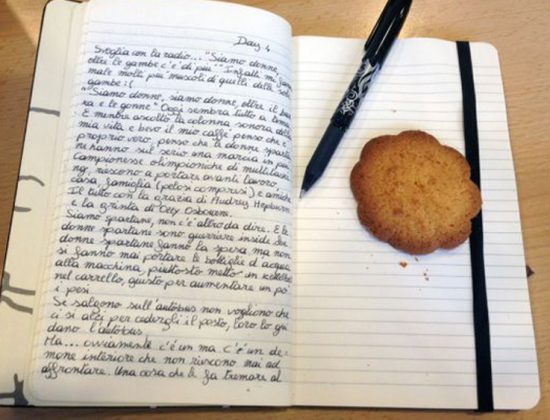 Day 4
Sveglia con la radio... "Siamo donne,
oltre le gambe c'è di più" Infatti mi fanno
male molti più muscoli di quelli delle
gambe :(
"Siamo donne, siamo donne, oltre il
ra e le gonne" Oggi sembra tutto a
E mentre ascolto la colonna sonora della
mia vita e bevo il mio caffè penso che è
proprio vero, penso che le donne spartane
ne hanno sul serio una marcia in più.
Campionesse olimpioniche di multitaski
ng, riescono a portare avanti lavoro,
casa, famiglia (pelosi compresi) e amiche
Il tutto con la grazia di Audrey Hepburn
e la grinta di Ozzy Osbourn.
Siamo spartane, non c'è altro da dire. E le
donne spartane sono guerriere inside. Le
donne spartane fanno la spesa ma non
si fanno mai portare le bottiglie d'acqua
alla macchina, piuttosto metto un kettlebell
nel carrello, giusto per aumentare un po'
i pesi.
Se salgono sull'autobus non vogliono che
ci si alzi per cedergli il posto, loro lo gui
dano l'autobus.
Ma... ovviamente c'è un ma c'è un de-
mone interiore che non riescono mai ad
affrontare. Una cosa che le fa tremare al